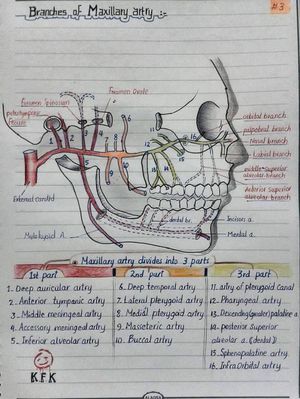 Branches of Maxillary artry :-
#3
Foramen Spinosum
Foramen Ovate
petrotympanic
fissure
orbital branch
palpebral branch
Nasal branch
Labial branch
middle superior
alveolar branch
Anterior superior
alveolar branch
External carotid
Mylohyoid A.
dental br.
Incisor a.
Mental a.
1
2
3
4
5
6
6
7
8
9
10
11
12
13
14
15
16
Maxillary artry divides into 3 parts
1st part
2nd part
3rd part
1. Deep auricular artry
2. Anterior tympanic artry
3. Middle meningeal artry
4. Accessory meningeal artry
5. Inferior alveolar artry
6. Deep temporal artry
7. Lateral pterygoid artry
8. Medial pterygoid artry
9. Masseteric artry
10. Buccal artry
11. artry of pterygoid Canal
12. Pharyngeal artry
13. Descending(greater)palatine a.
14. posterior Superior
alveolar a. (dental)
15. Sphenopalatine artry
16. InfraOrbital artry
KFK